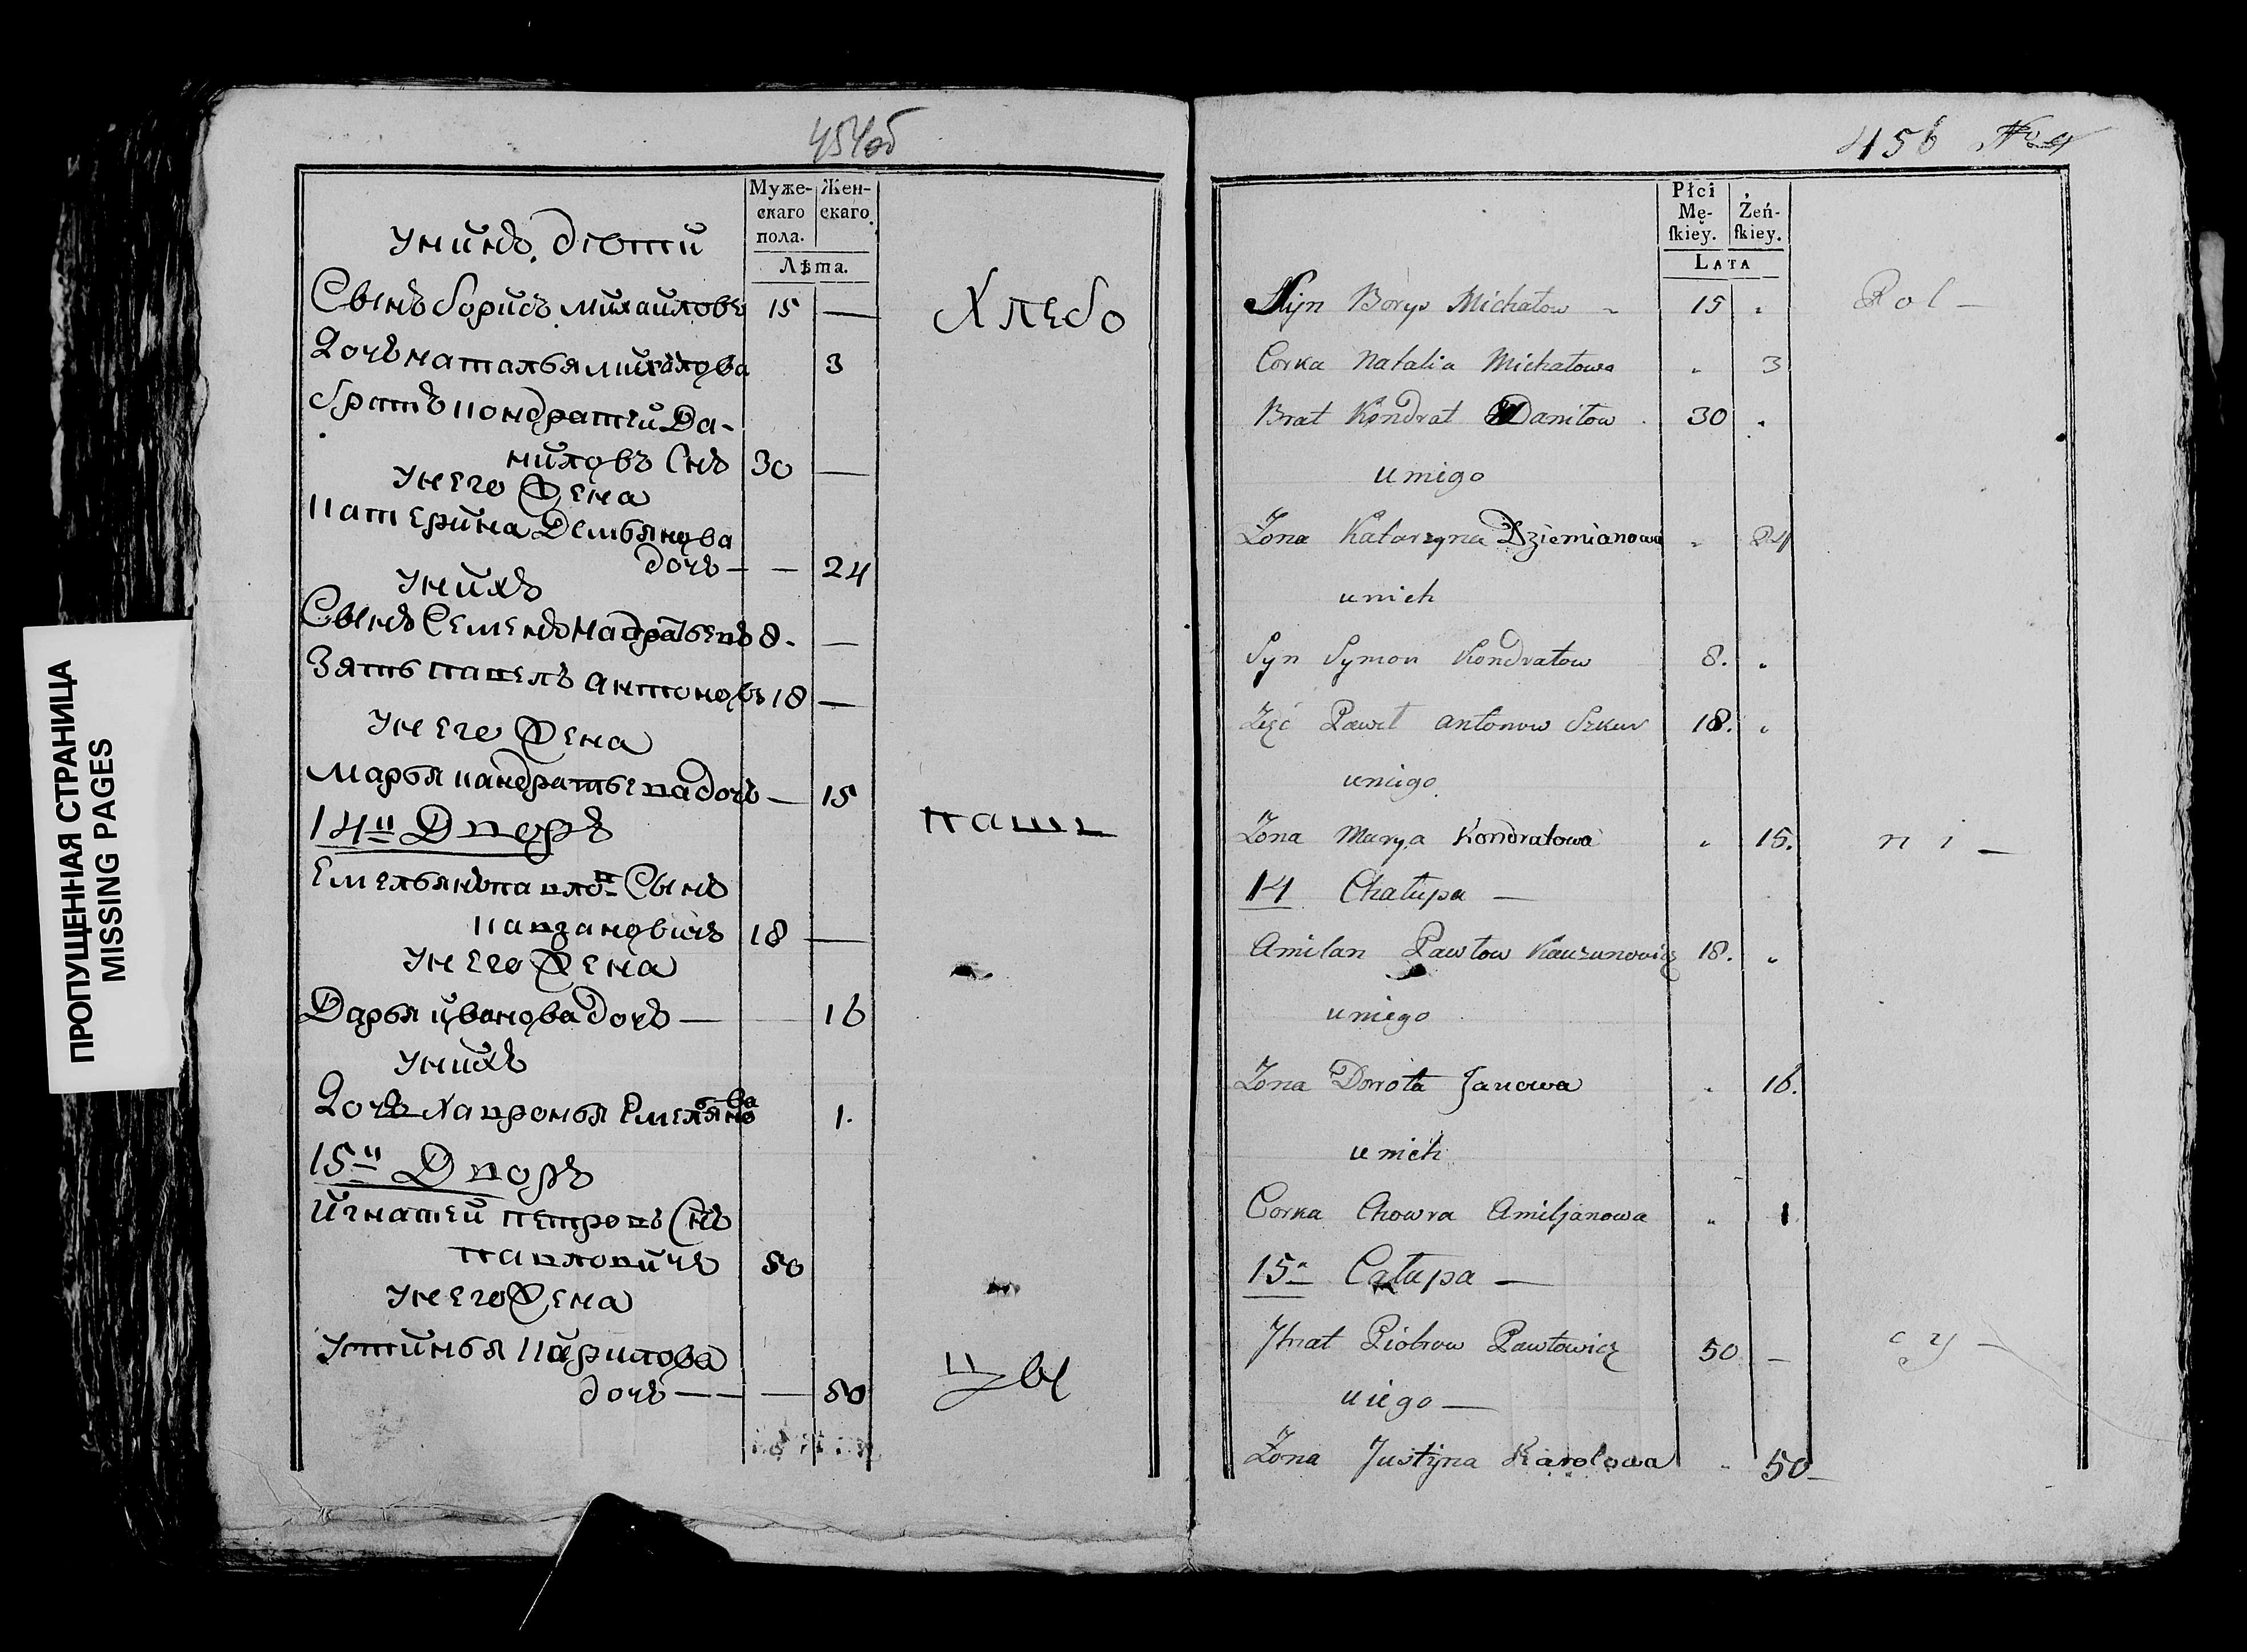 454об
Муже-
скаго
пола.
Жен-
скаго.
Лѣта.
Унихъ дѣтти
Сынъ борисъ михаиловъ 15 —
Дочь наталья михалова 3
братъ кондратей Да-
ниловъ Снъ 30 —
Унего жена
катерина Демьянова
дочь — — 24
Унихъ
Сынъ Семенъ кадратьевъ 8. —
Зять павелъ антоновъ 18 —
Унего жена
марья кандратьева дочь — 15
14й Дворъ
Емельянъ павлов Сынъ
кавзановичъ 18 —
Унего жена
Дарья иванова дочь — 16
Унихъ
Дочь Хавронья Емельянова 1.
15й Дворъ
Игнатей петровъ Снъ
павловичъ 50
Унего жена
устинья кирилова
дочь — — — 50
Хлебо
паш
цы
456
Płci
Mę-
ſkiey.
Żeń-
ſkiey.
LATA
Syn Borys Michałow 15 "
Corka Natalia Michałowa " 3
Brat Kondrat Daniłow 30 "
u niego
Żona Katarzyna Dziemianowa " 24
unich
Syn Symon Kondratow 8. "
Zięć Paweł Antonow Szkur 18. "
uniego
Żona Marya Kondratowa " 15.
14 Chałupa —
Amilan Pawłow Kauzunowicz 18. "
uniego
Żona Dorota Janowa " 16.
unich
Corka Chowra Amiljanowa " 1
15a Całupa —
Jhnat Piotrow Pawłowicz 50 —
uiego —
Żona Justyna Karolowa " 50
Rol —
n i —
c y —
ПРОПУЩЕННАЯ СТРАНИЦА
MISSING PAGES